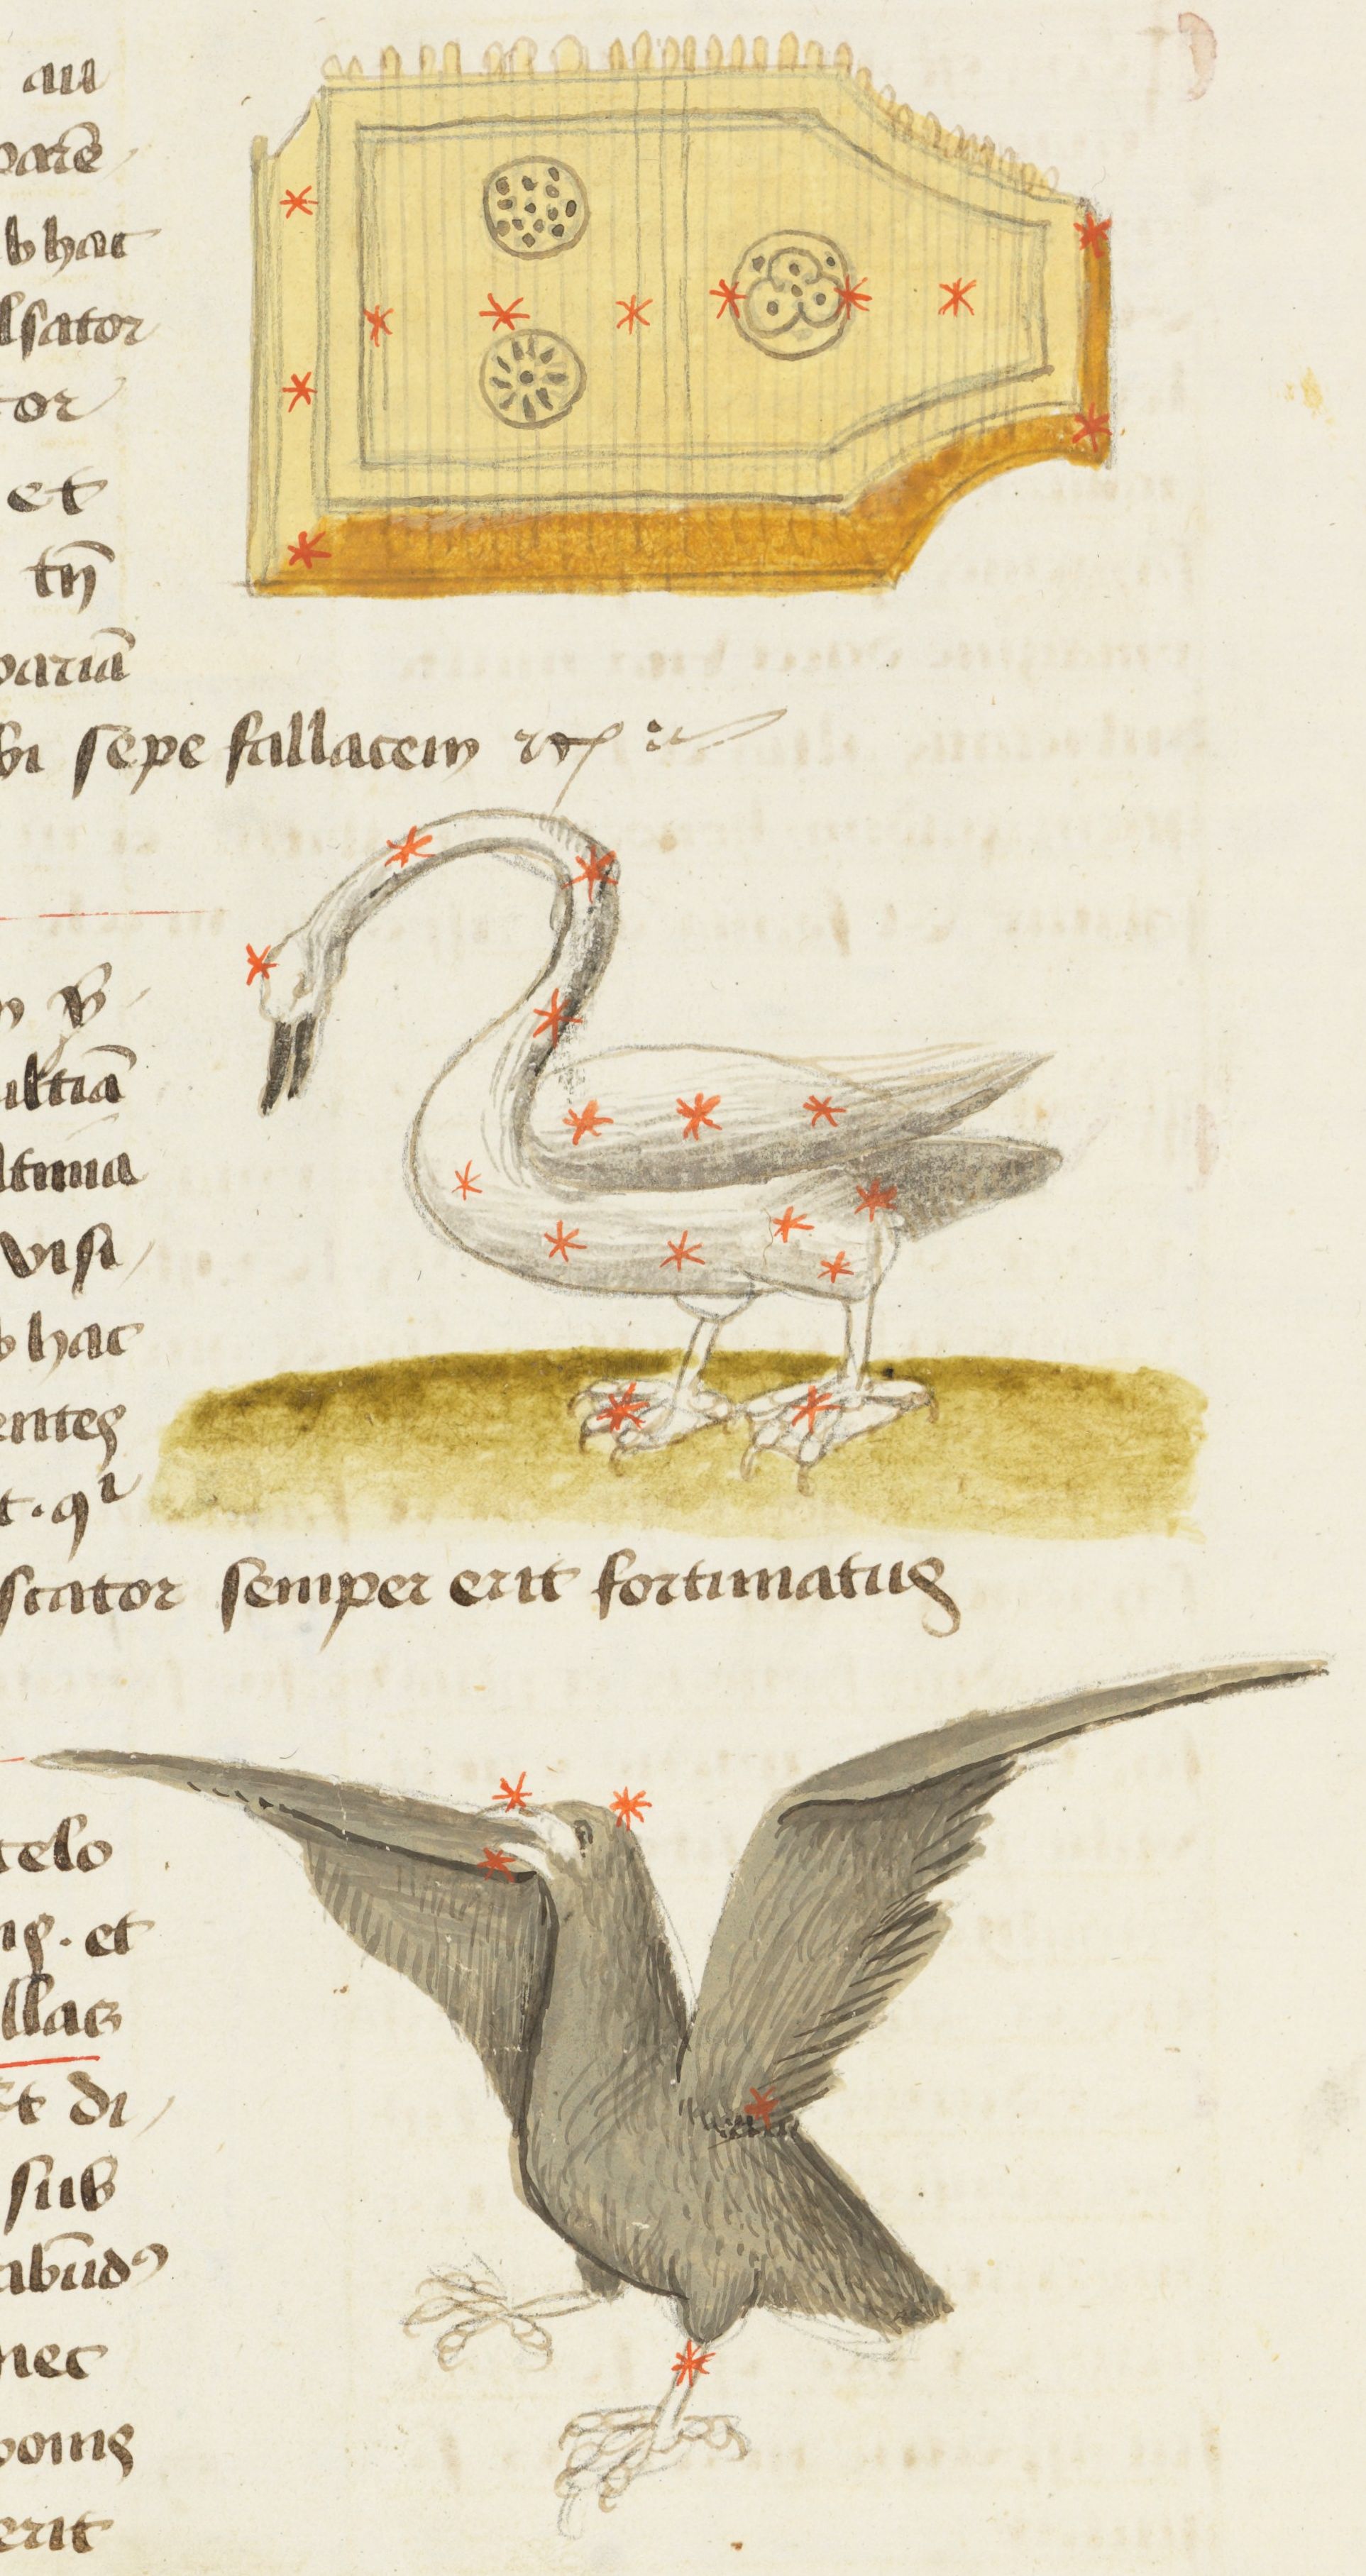 au
parē
b hac
lsator
tor
et
tn̄
pariā
bi sepe fallacem
ultiā
ltima
visi
b hac
entes
t. qi
scator semper erit fortunatus
telo
ng. et
llas
Et di
sub
abūdꝰ
nec
bonis
erit